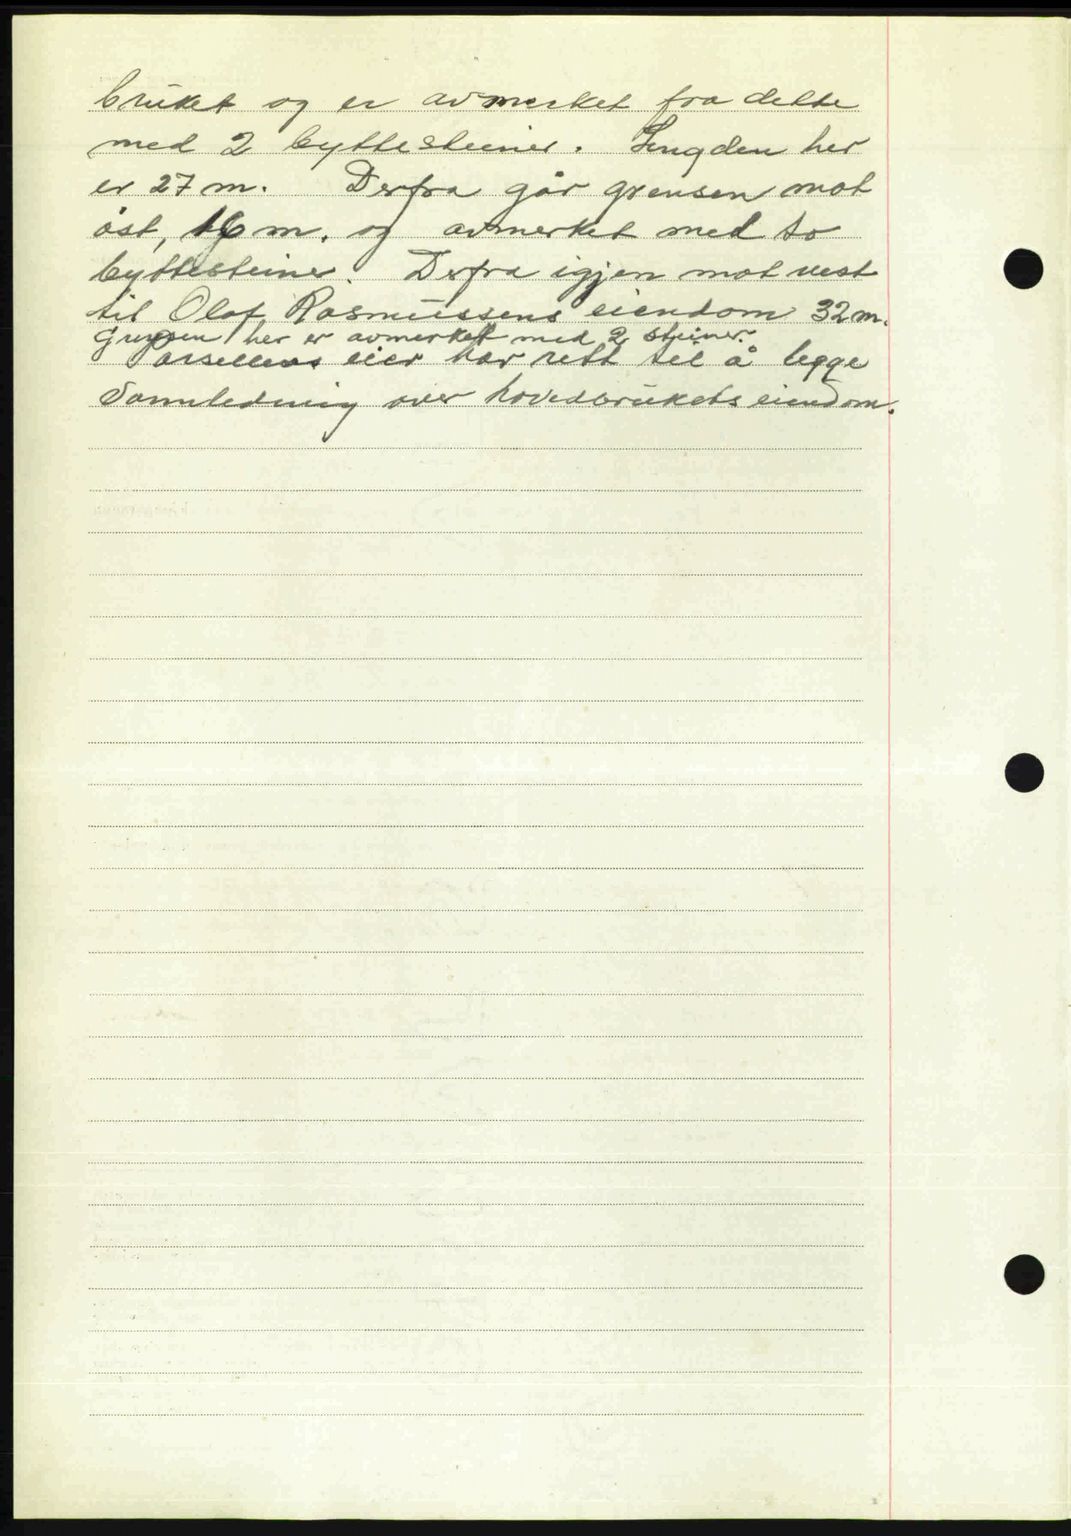 bruket og er avmerket fra dette
med 2 byttesteiner. Lengden her
er 27 m. Derfra går grensen mot
øst, 16 m. og avmerket med to
byttesteiner. Derfra igjen mot vest
til Olaf Rasmussens eiendom 32 m.
Grensen her er avmerkett med 2 steiner.
Parsellens eier har rett til å legge
Vannledning over hovedbrukets eiendom.